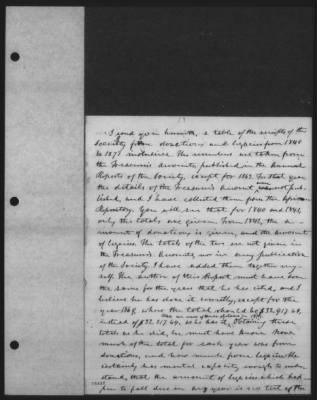 I send you herewith, a table of the receipts of the
Society from donations and legacies from 1840
to 1871 inclusive. The numbers are taken from
the Treasurer's accounts published in the Annual
Reports of the Society, except for 1862. In that year
the details of the Treasurer's account, were not pub-
lished, and I have collected them from the African
Repository. You will see that for 1840 and 1841,
only the totals are given. From 1842, the a-
mount of donations is given, and the amount
of legacies. The totals of the two are not given in
the Treasurer's Accounts, nor in any publication
of the Society. I have added them together my-
self. The author of this Report must have done
the same for the years that he has cited, and I
believe he has done it correctly, except for the
year 1869, where the total should be $32,917.64,
instead of $32,117.64, as he has it.
these
totals as he did, he must have known how
much of the total for each year was from
donations, and how much from legacies. He
certainly has mental capacity enough to under-
stand, that the amount of legacies which hap-
pen to fall due in any year is no test of the